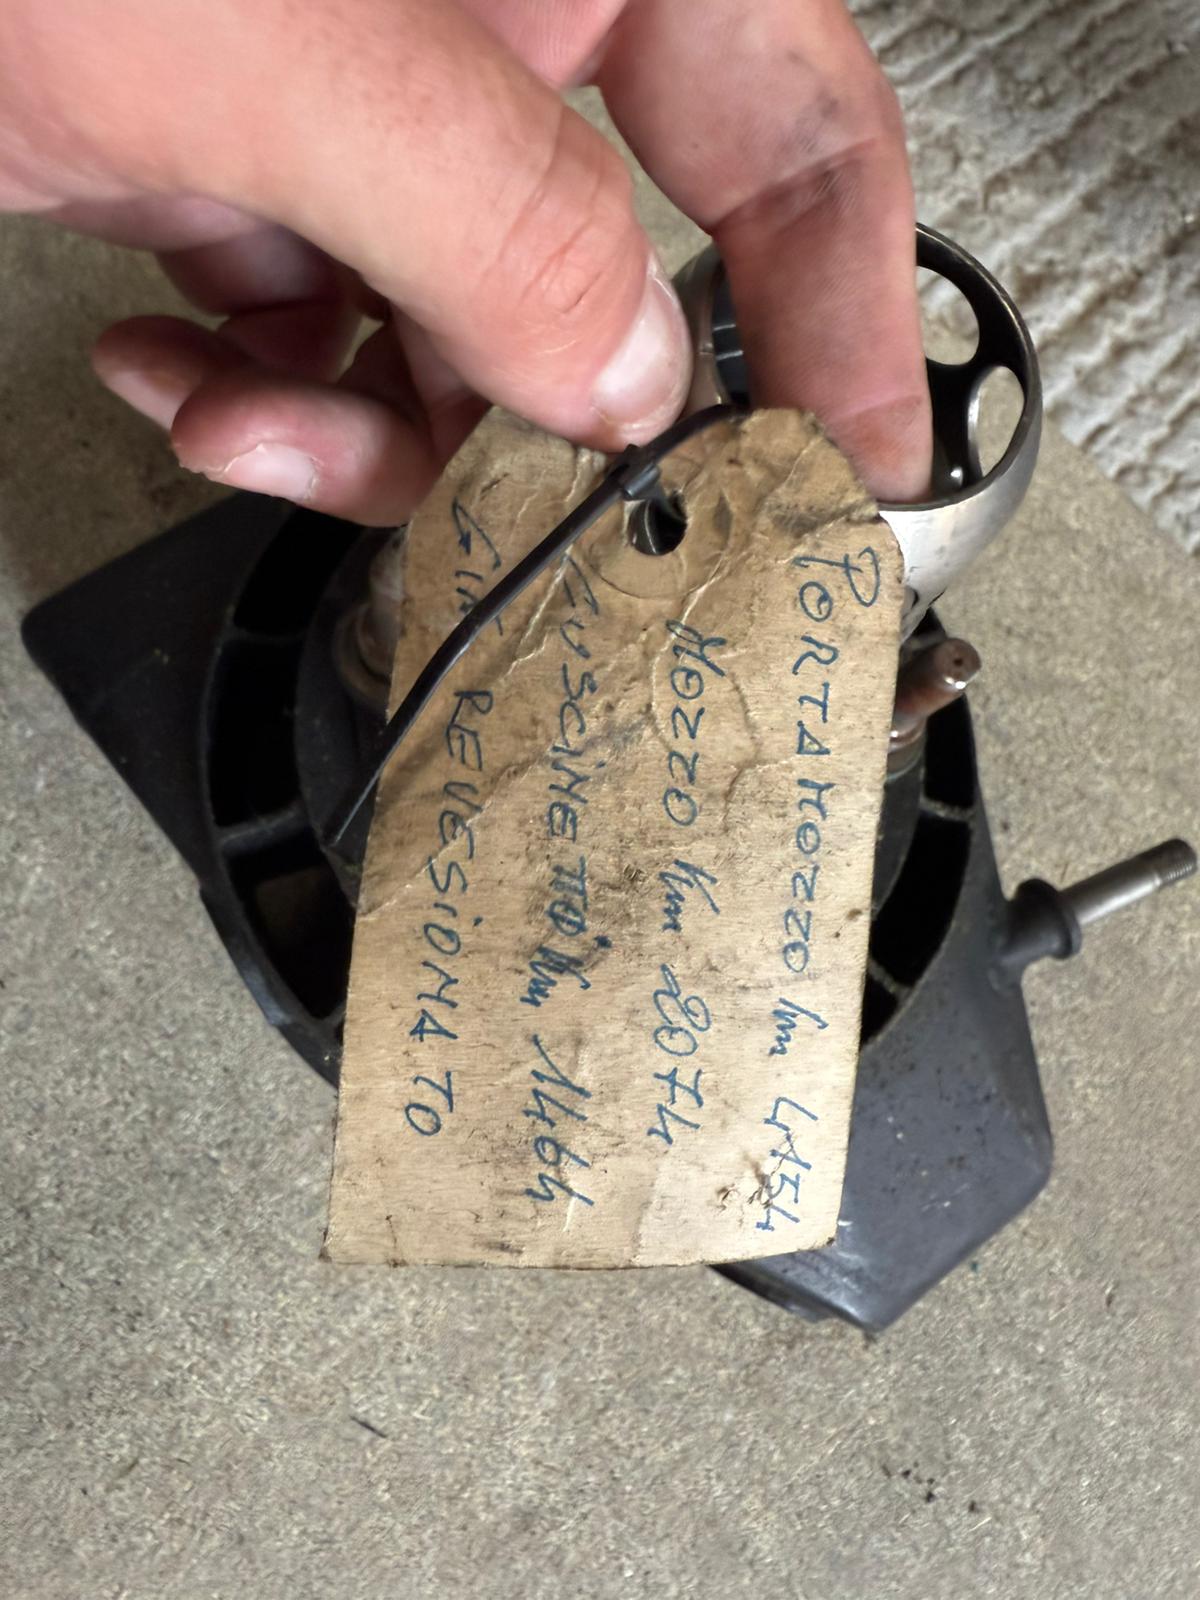 PORTAMOZZO Km 4154
MOZZO Km 2074
CUSCINETTO Km 1464
REVESIONATO